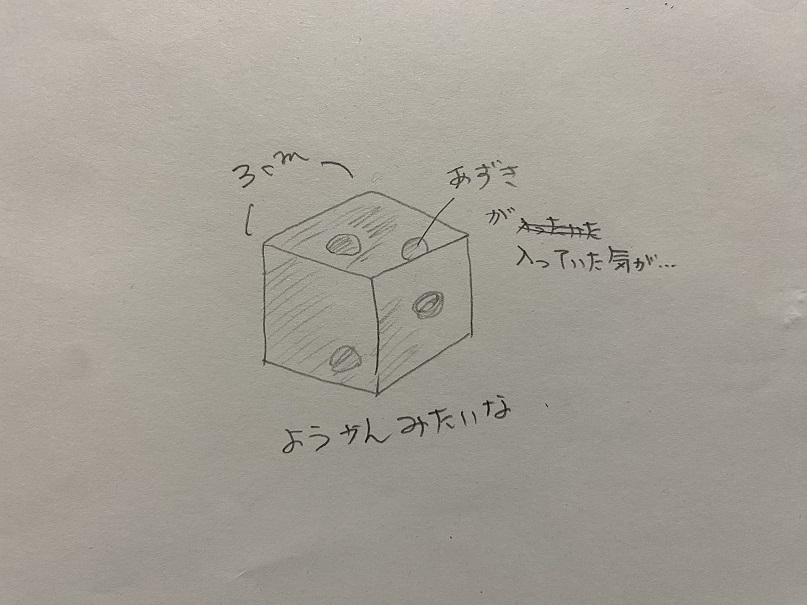 3cm
あずき
が
入っていた気が…
ようかんみたいな